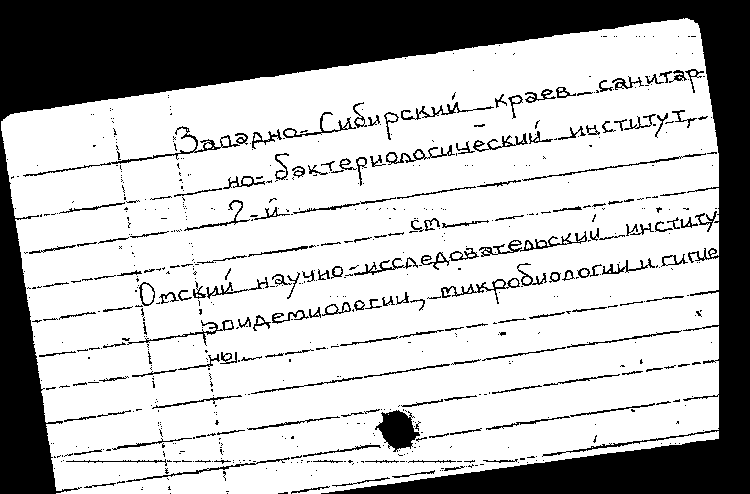 Западно-Сибирский краев санитар-
но-бактериологический институт,
2-й.
ст.
Омский научно-исследовательский институ
эпидемиологии, микробиологии и гигие
ны.